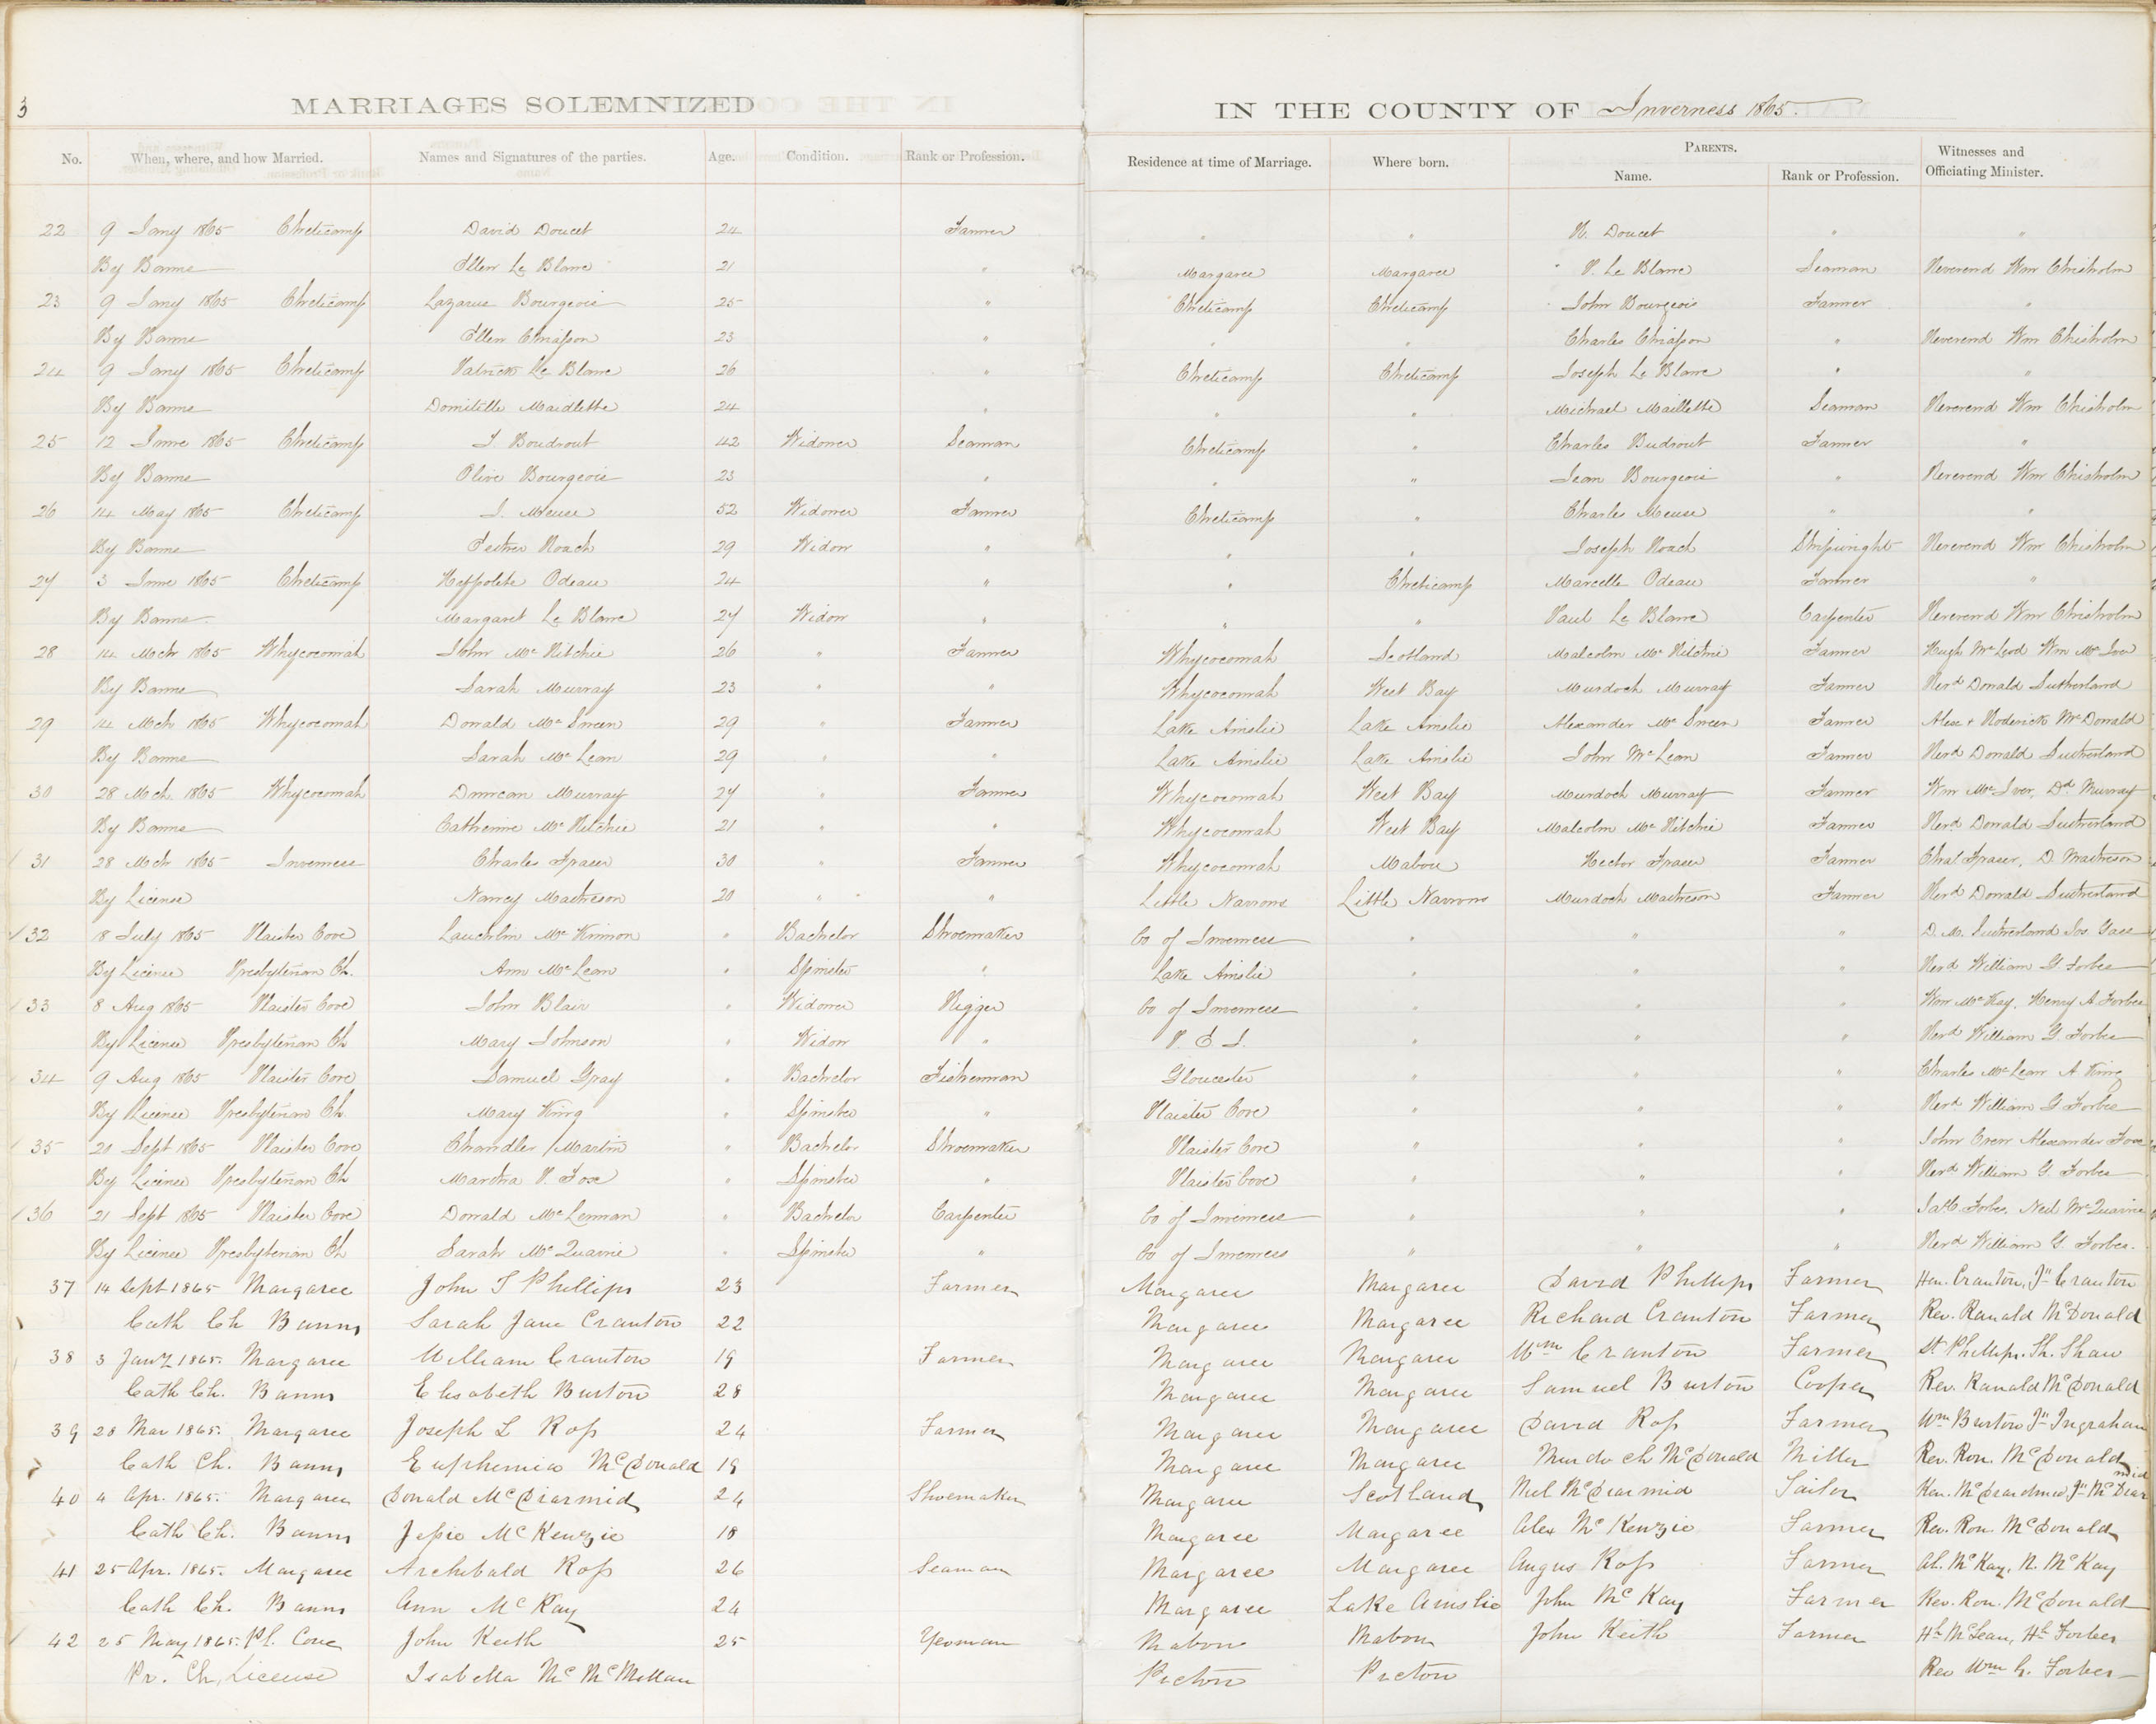 3
MARRIAGES SOLEMNIZED IN THE COUNTY OF Inverness 1865.
No. When, where, and how Married. Names and Signatures of the parties. Age. Condition. Rank or Profession. Residence at time of Marriage. Where born. PARENTS. Name. Rank or Profession. Witnesses and Officiating Minister.
22 9 Jany 1865 Cheticamp David Doucet 24 Farmer " " N. Doucet " "
By Banns Ellen Le Blanc 21 " Margaree Margaree " P. Le Blanc Seaman Reverend Wm Chisholm
23 9 Jany 1865 Cheticamp Lazarus Bourgeois 25 " Cheticamp Cheticamp John Bourgeois Farmer "
By Banns Ellen Chiasson 23 " " " Charles Chiasson " Reverend Wm Chisholm
24 9 Jany 1865 Cheticamp Patrick Le Blanc 26 " Cheticamp Cheticamp Joseph Le Blanc " "
By Banns Domitille Maidlette 24 " " " Michael Maillette Seaman Reverend Wm Chisholm
25 12 June 1865 Cheticamp J Boudrout 42 Widower Seaman Cheticamp " Charles Budrout Farmer "
By Banns Olive Bourgeois 23 " " " Jean Bourgeois " Reverend Wm Chisholm
26 14 May 1865 Cheticamp J. Meuse 52 Widower Farmer Cheticamp " Charles Meuse " "
By Banns Roach 29 Widow " " " Joseph Roach Shipwright Reverend Wm Chisholm
27 3 June 1865 Cheticamp Heppolite Odeau 24 " " Cheticamp Marcelle Odeau Farmer "
By Banns Margaret Le Blanc 27 Widow " " " Paul Le Blanc Carpenter Reverend Wm Chisholm
28 14 Mch 1865 Whycocomah John Mc Ritchie 26 " Farmer Whycocomah Scotland Malcolm Mc Ritchie Farmer Hugh McLeod Wm McIver
By Banns Sarah Murray 23 " " Whycocomah West Bay Murdoch Murray Farmer Revd Donald Sutherland
29 14 Mch 1865 Whycocomah Donald Mc Sween 29 " Farmer Lake Ainslie Lake Ainslie Alexander Mc Sween Farmer Alex + Roderick McDonald
By Banns Sarah Mc Lean 29 " " Lake Ainslie Lake Ainslie John McLean Farmer Revd Donald Sutherland
30 28 Mch 1865 Whycocomah Duncan Murray 27 " Farmer Whycocomah West Bay Murdoch Murray Farmer Wm McIver, Dd Murray
By Banns Catherine Mc Ritchie 21 " " Whycocomah West Bay Malcolm Mc Ritchie Farmer Revd Donald Sutherland
31 28 Mch 1865 Inverness Charles Fraser 30 " Farmer Whycocomah Mabou Hector Fraser Farmer Chal Fraser, D. Matheson
By License Nancy Matheson 20 " " " Little Narrows Little Narrows Murdoch Matheson Farmer Revd Donald Sutherland
32 18 July 1865 Plaister Cove Lauchlin Mc Kinnon " Bachelor Shoemaker Co of Inverness " " " D. M. Sutherland Jos Gass
By License Presbyterian Ch. Ann McLean " Spinster " Lake Ainslie Revd William G. Forbes
33 8 Aug 1865 Plaister Cove John Blair " Widower Rigger Co of Inverness " " " Wm McKay, Henry A. Forbes
By License Presbyterian Ch Mary Johnson " Widow " P. E. I. " " " Revd William G. Forbes
34 9 Aug 1865 Plaister Cove Samuel Gray " Bachelor Fisherman Gloucester " " " Charles McLean A. King
By License Presbyterian Ch. Mary King " Spinster " Plaister Cove " " " Revd William G Forbes
35 20 Sept 1865 Plaister Cove Chandler Martin " Bachelor Shoemaker Plaister Cove " " " John Crew Alexander Fox
By License Presbyterian Ch Martha P. Fox " Spinster " Plaister Cove " " " Revd William G. Forbes
36 21 Sept 1865 Plaister Cove Donald Mc Lennan " Bachelor Carpenter Co of Inverness " " " Forbes, Neil McQuarrie
By License Presbyterian Ch Sarah Mc Quarrie " Spinster " Co of Inverness " " " Revd William G. Forbes.
37 14 Sept 1865 Margaree John T Phillips 23 Farmer Margaree Margaree David Phillips Farmer Hen. Cranton, Jn Cranton
Cath Ch Banns Sarah Jane Cranton 22 Margaree Margaree Richard Cranton Farmer Rev. Ranald McDonald
38 3 Jany 1865. Margaree William Cranton 19 Farmer Margaree Margaree Wm Cranton Farmer St Phillips. Sh. Shaw
Cath Ch. Banns Elisabeth Burton 28 Margaree Margaree Samuel Burton Cooper Rev. Ranald McDonald
39 28 Mar 1865. Margaree Joseph L Ross 24 Farmer Margaree Margaree David Ross Farmer Wm Burton Jn Ingraham
Cath Ch. Banns Euphemia McDonald 19 Margaree Margaree Murdoch McDonald Miller Rev. Ron. McDonald
40 4 Apr. 1865. Margaree Donald McDiarmid 24 Shoemaker Margaree Scotland Neil McDiarmid Tailor Ken. McDiarmid, Jn McDiarmid
Cath Ch. Banns Jessie McKenzie 18 Margaree Margaree Alex McKenzie Farmer Rev. Ron. McDonald
41 25 Apr. 1865. Margaree Archibald Ross 26 Seaman Margaree Margaree Angus Ross Farmer Al. McKay, N. McKay
Cath Ch. Banns Ann McKay 24 Margaree Lake Ainslie John McKay Farmer Rev. Ron. McDonald
42 25 May 1865. Pl. Cove John Keith 25 Yeoman Mabou Mabou John Keith Farmer Hh McLean, Hh Forbes
Pr. Ch. License Isabella Mc McMillan Pictou Pictou Rev Wm G. Forbes